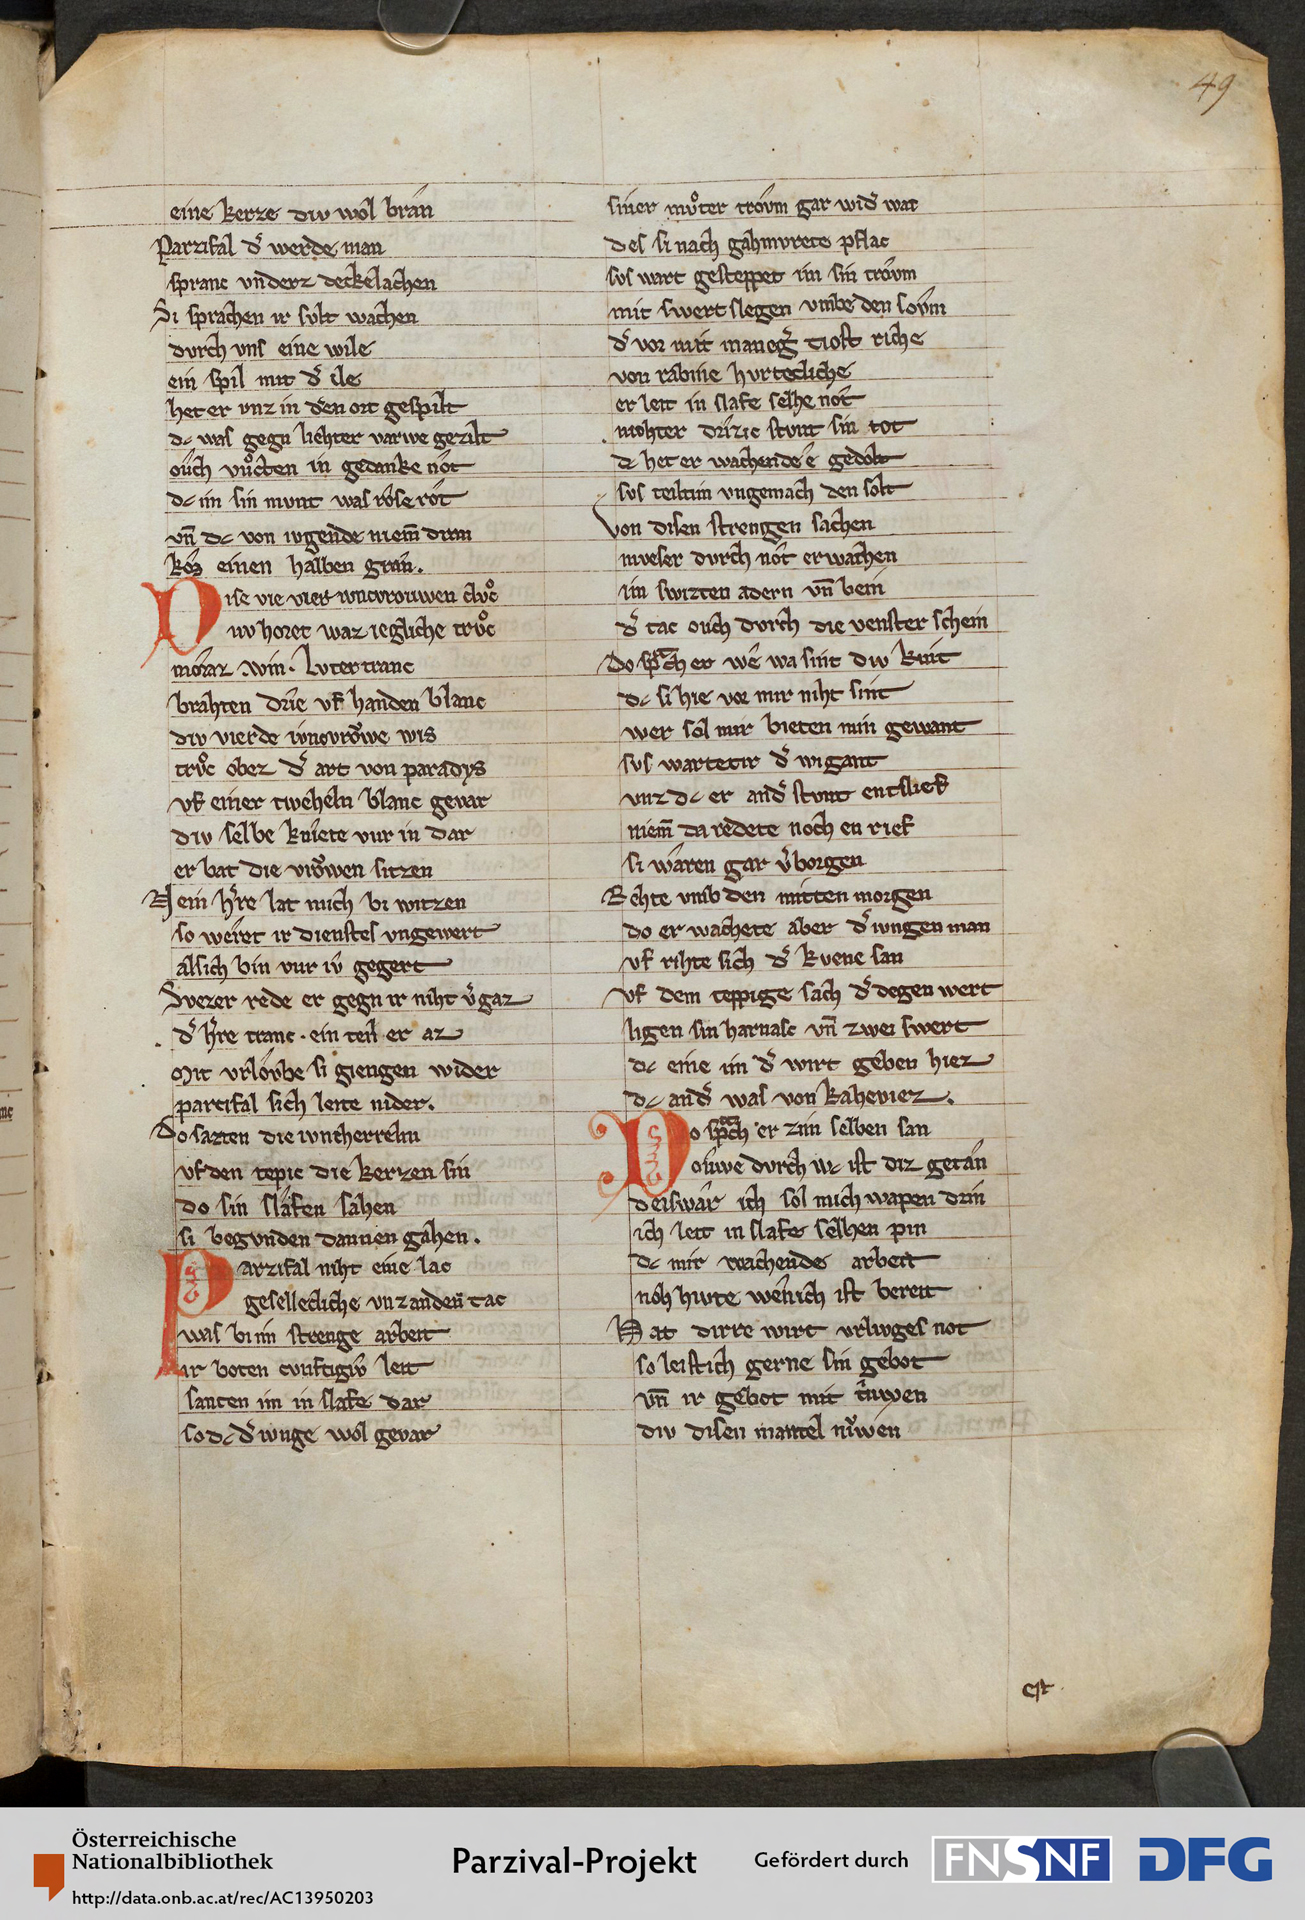 49
eine kerze div wol bran
Parzifal dˢ werde man
spranc vnderz deckelachen
Si sprachen ir svlt wachen
dvrch vns eine wile
ein spil mit dˢ ile
het er vnz in den ort gespilt
dc was gegn liehter varwe gezilt
ouch vuͦcten in gedanke not
dc im sin mvnt was rose rot
vn̄ dc von ivgende niem̄ dran
kos einen halben gran.
Dise vie vier ivncvrouwen clvͦc
nv horet waz iegliche trvͦc
moraz. win. lvtertranc
brahten drie vf handen blanc
div vierde ivncvroͮwe wis
trvͦc obez dˢ art von paradys
vf einer tweheln blanc gevar
div selbe kniete vur in dar
er bat die vroͮwen sitzen
Nein hˢre lat mich bi witzen
so weret ir dienstes vngewert
als ich bin vur iv gegert
Svezer rede er gegn ir niht vˢgaz
dˢ hˢre tranc. ein teil er az
Mit vrlovbe si giengen wider
parcifal sich leite nider.
Do sazten die ivncherrelin
vf den tepic die kerzen sin
do sin slafen sahen
si begvnden dannen gahen.
Parzifal niht eine lac
gesellecliche vnz an den̄ tac
was bi im strenge arbeit
ir boten cvnftigiv leit
santen im in slafe dar
so dc dˢ ivnge wol gevar
siner mvͦter trovm gar widˢ wac
des si nach gahmvrete pflac
svs wart gesteppet im sin trovm
mit swertslegen vmbe den sovm
dˢ vor mit manegˢ tiost riche
von rabine hvrtecliche
er leit in slafe selhe not
mohter drizic stvnt sin tot
dc het er wachende e gedolt
svs teiltim vngemach den solt
Von disen strengen sachen
mveser dvrch not erwachen
im swizten adern vn̄ bein
dˢ tac ouch dvrch die venster schein
Do sprach er we wa sint div kint
dc si hie vor mir niht sint
wer sol mir bieten min gewant
svs wartetir dˢ wigant
vnz dc er andˢ stvnt entslief
niem̄ da redete noch en rief
si waren gar vˢborgen
Rehte vmb den mitten morgen
do er wachete aber dˢ ivngen man
vf rihte sich dˢ kvene san
Vf dem teppige sach dˢ degen wert
ligen sin harnasc vn̄ zwei swert
dc eine im dˢ wirt geben hiez
dc andˢ was von kaheviez.
Do sprach er zim selben san
oiwe dvrch wc ist diz getan
deiswar ich sol mich wapen drin
ich leit in slafe selhen pin
dc mir wachendes arbeit
noh hivte wen ich ist bereit
Hat dirre wirt vrlivges not
so leist ich gerne sin gebot
vn̄ ir gebot mit triwen
div disen mantel niwen
Österreichische
Nationalbibliothek
http://data.onb.ac.at/rec/AC13950203
Parzival-Projekt
Gefördert durch
FNSNF
DFG